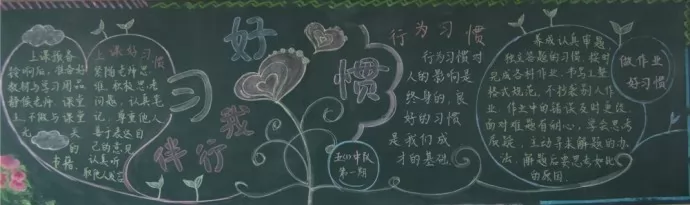 上课预备
铃响后，准备好
教材与学习用品
静候老师，课堂
上不做与课堂
无关
的
书籍。
上课好习惯
紧随老师思
维，积极思考
问题，认真笔
记，尊重他人
善于表达自
己的意见
认真听
取他人发言
好习惯
伴我行
五(1)中队
第一期
行为习惯
行为习惯对
人的影响是
终身的，良
好的习惯
是我们成
才的基础。
养成认真审题，
独立答题的习惯，按时
完成各科作业，书写工整
格式规范，不抄袭别人作
业，作业中的错误及时更改
面对难题有耐心，学会思考
反驳，主动寻求解题的办
法，解题后要思考如此
的原因
做作业
好习惯